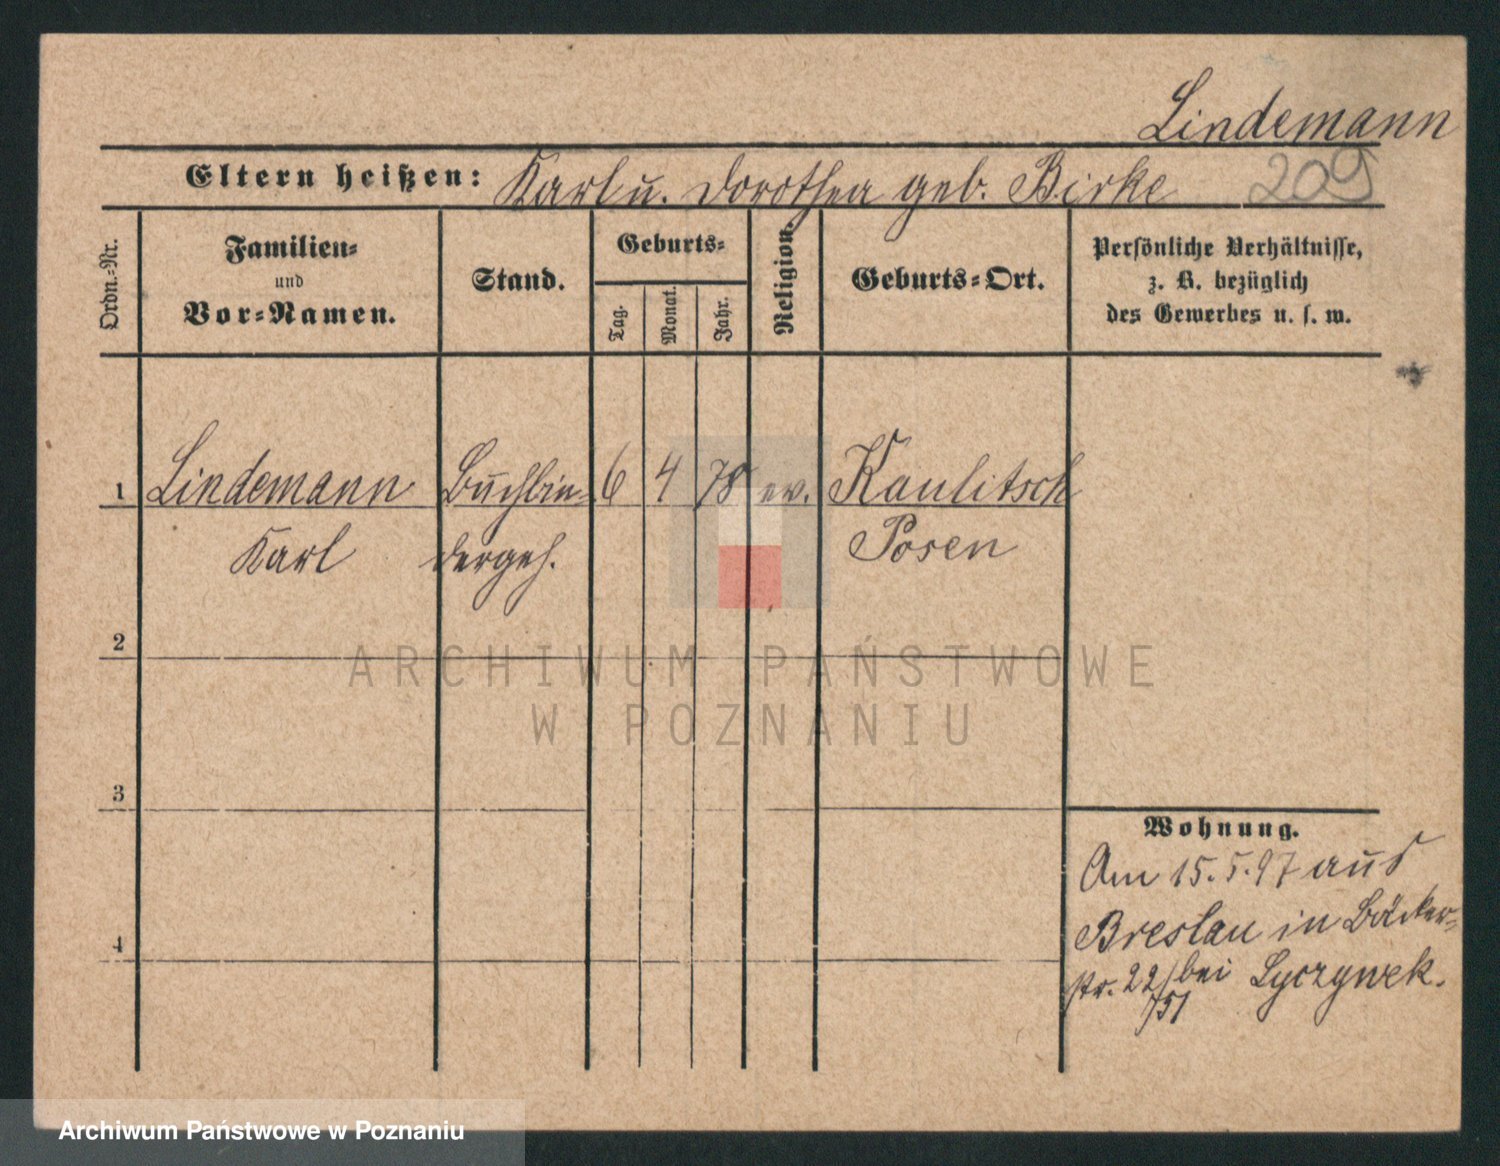 Lindemann
Eltern heißen: Karl u. Dorothea geb. Birke 209
Ordn.-Nr.
Familien-
und
Vor-Namen.
Stand.
Geburts-
Tag.
Monat.
Jahr.
Religion.
Geburts-Ort.
Persönliche Verhältnisse,
z. B. bezüglich
des Gewerbes u. s. w.
1 Lindemann Buchbin- 6 4 78 ev. Kaulitsch
Karl dergeh. Posen
2
ARCHIWUM PAŃSTWOWE
W POZNANIU
3
Wohnung.
Am 15.5.97 aus
Breslau in Bäcker-
4
str. 22/751 bei Lyczywek.
Archiwum Państwowe w Poznaniu